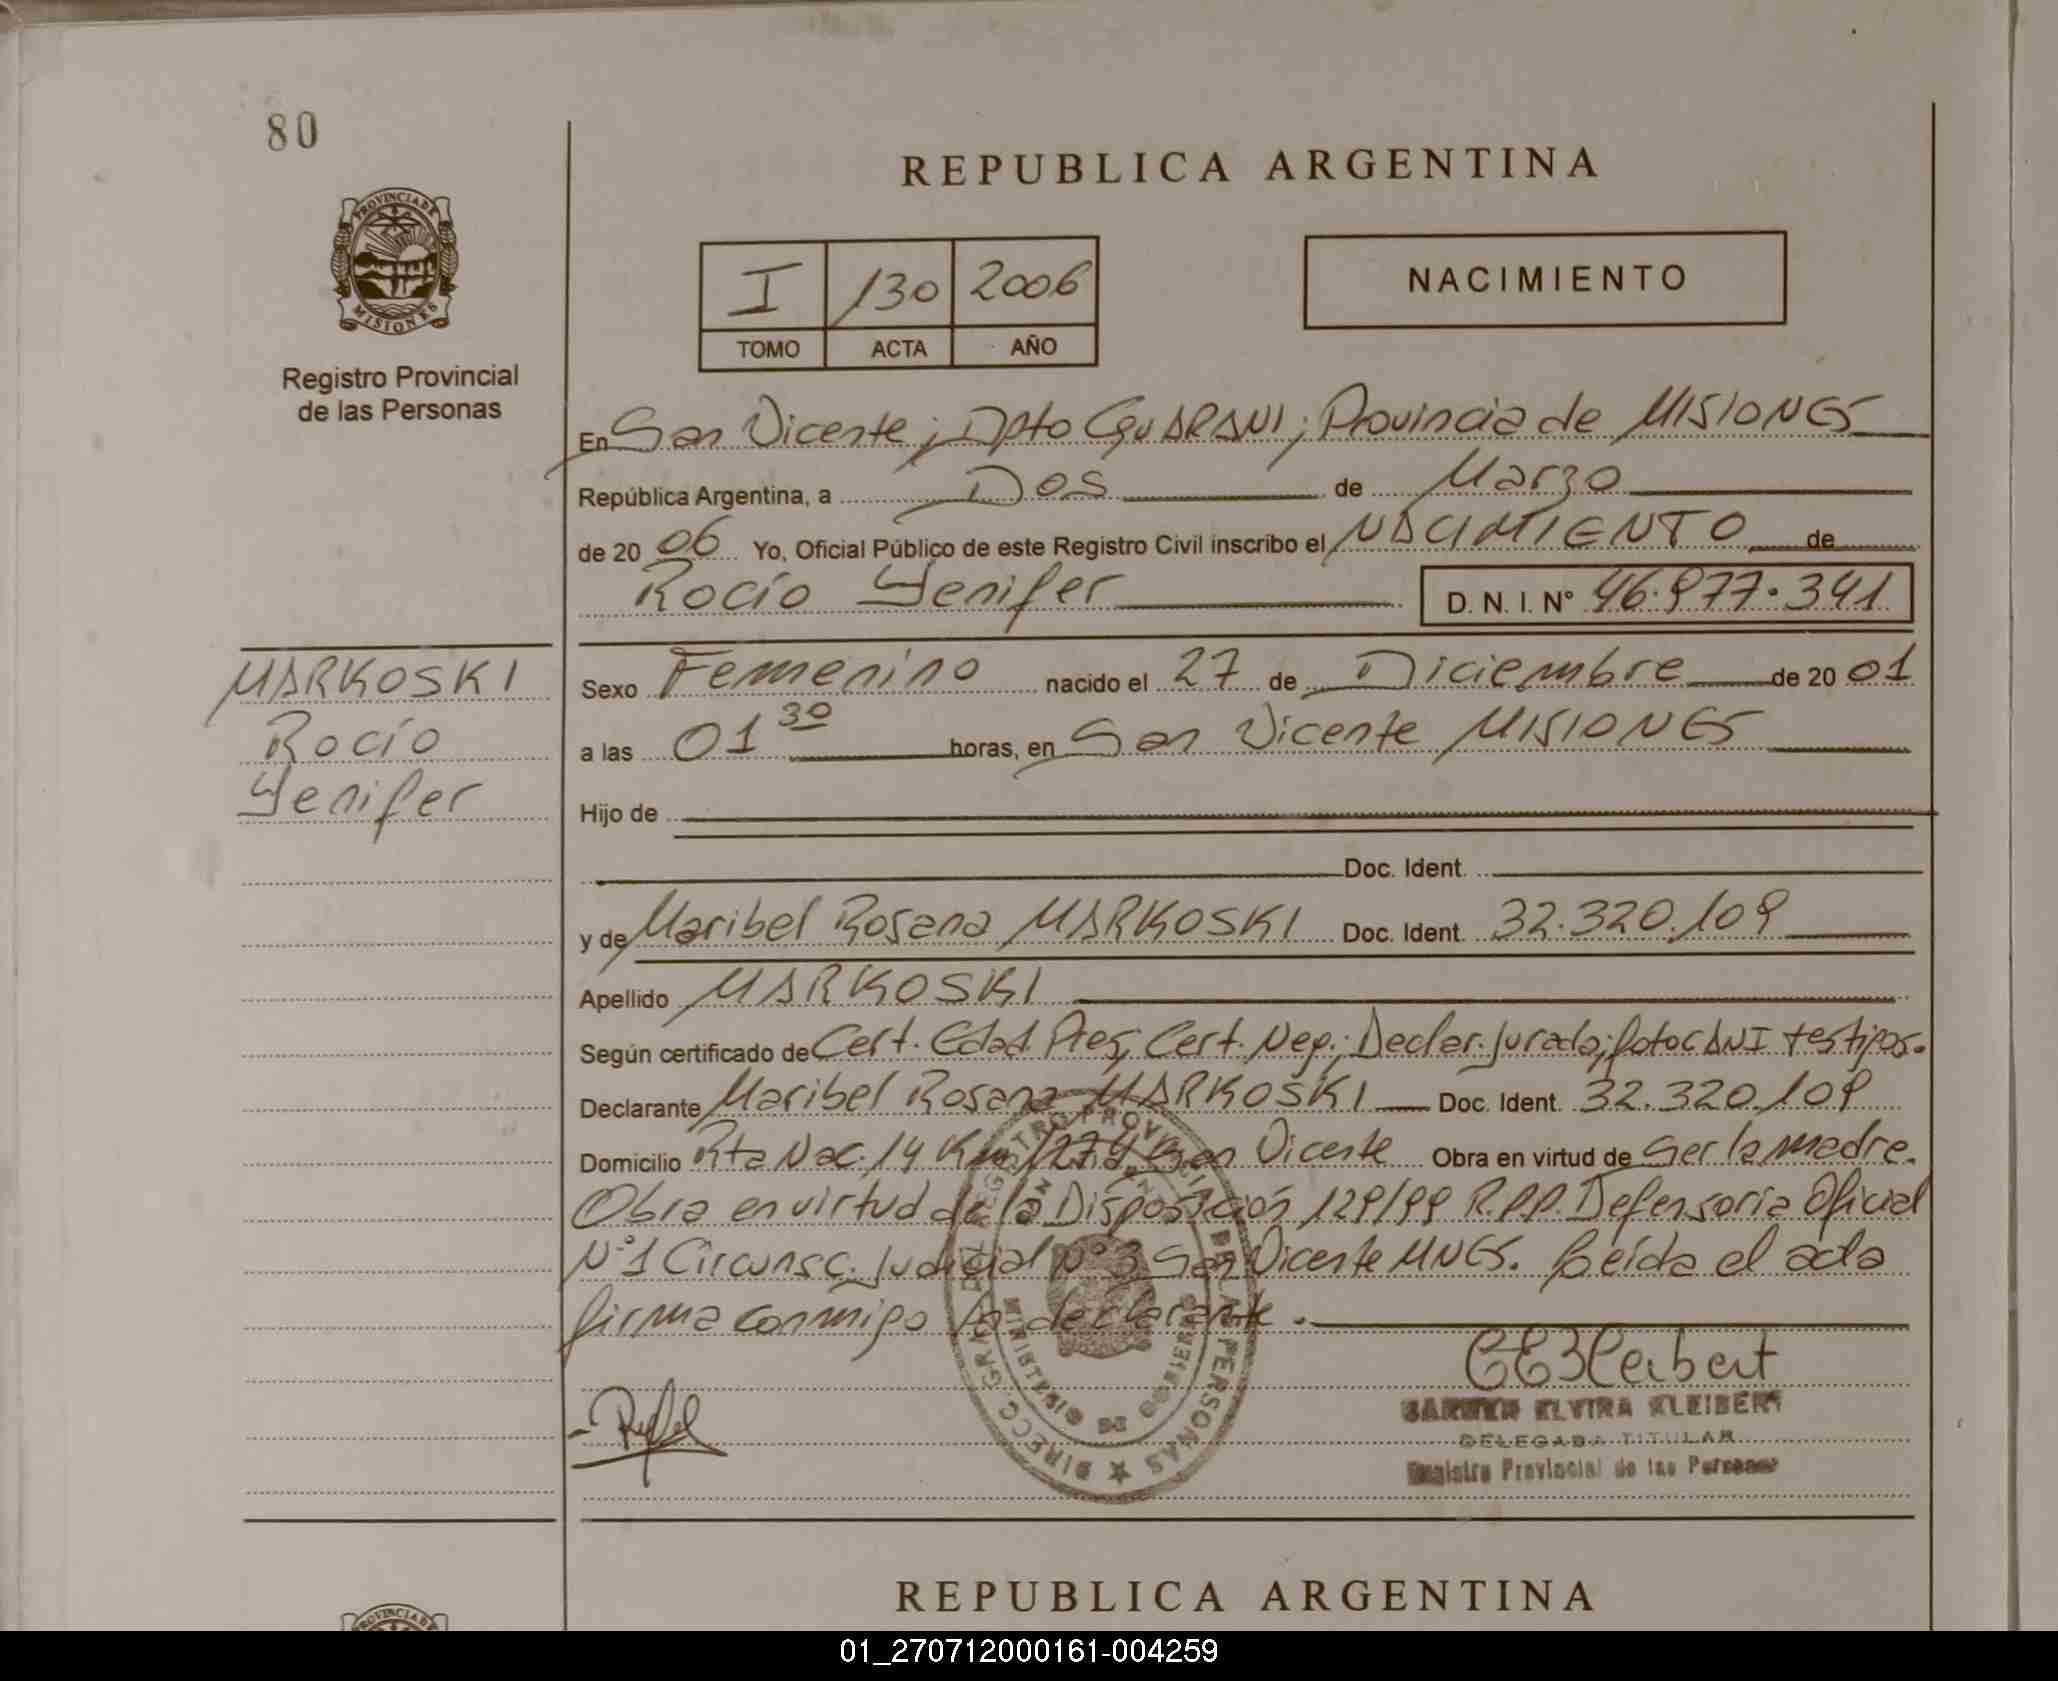 80
PROVINCIA DE
MISIONES
Registro Provincial
de las Personas
REPUBLICA ARGENTINA
I 130 2006
TOMO ACTA AÑO
NACIMIENTO
En San Vicente; Dpto GUARANI; Provincia de MISIONES
República Argentina, a Dos de Marzo
de 20 06 Yo, Oficial Público de este Registro Civil inscribo el NACIMIENTO de
Rocío Yenifer D. N. I. N° 46.977.341
MARKOSKI
Rocío
Yenifer
Sexo Femenino nacido el 27 de Diciembre de 20 01
a las 01 30 horas, en San Vicente MISIONES
Hijo de
Doc. Ident.
y de Maribel Rosana MARKOSKI Doc. Ident. 32.320.109
Apellido MARKOSKI
Según certificado de Cert. Edad Pres; Cert. Neg.; Declar. Jurada; fotoc DNI testigos.
Declarante Maribel Rosana MARKOSKI Doc. Ident. 32.320.109
Domicilio Rta Nac. 14 Km 1274 San Vicente Obra en virtud de ser la madre.
Obra en virtud de la Disposición 129/99 R.P.P. Defensoría Oficial
N°1 Circunsc. Judicial N°3 San Vicente MNES. Leída el acta
firma conmigo la declarante.
DIRECC. GRAL. DEL REGISTRO PROVINCIAL DE LAS PERSONAS
MINISTERIO DE GOBIERNO
CEKleibert
CARMEN ELVIRA KLEIBERT
DELEGADA TITULAR
Registro Provincial de las Personas
REPUBLICA ARGENTINA
PROVINCIA DE
01_270712000161-004259